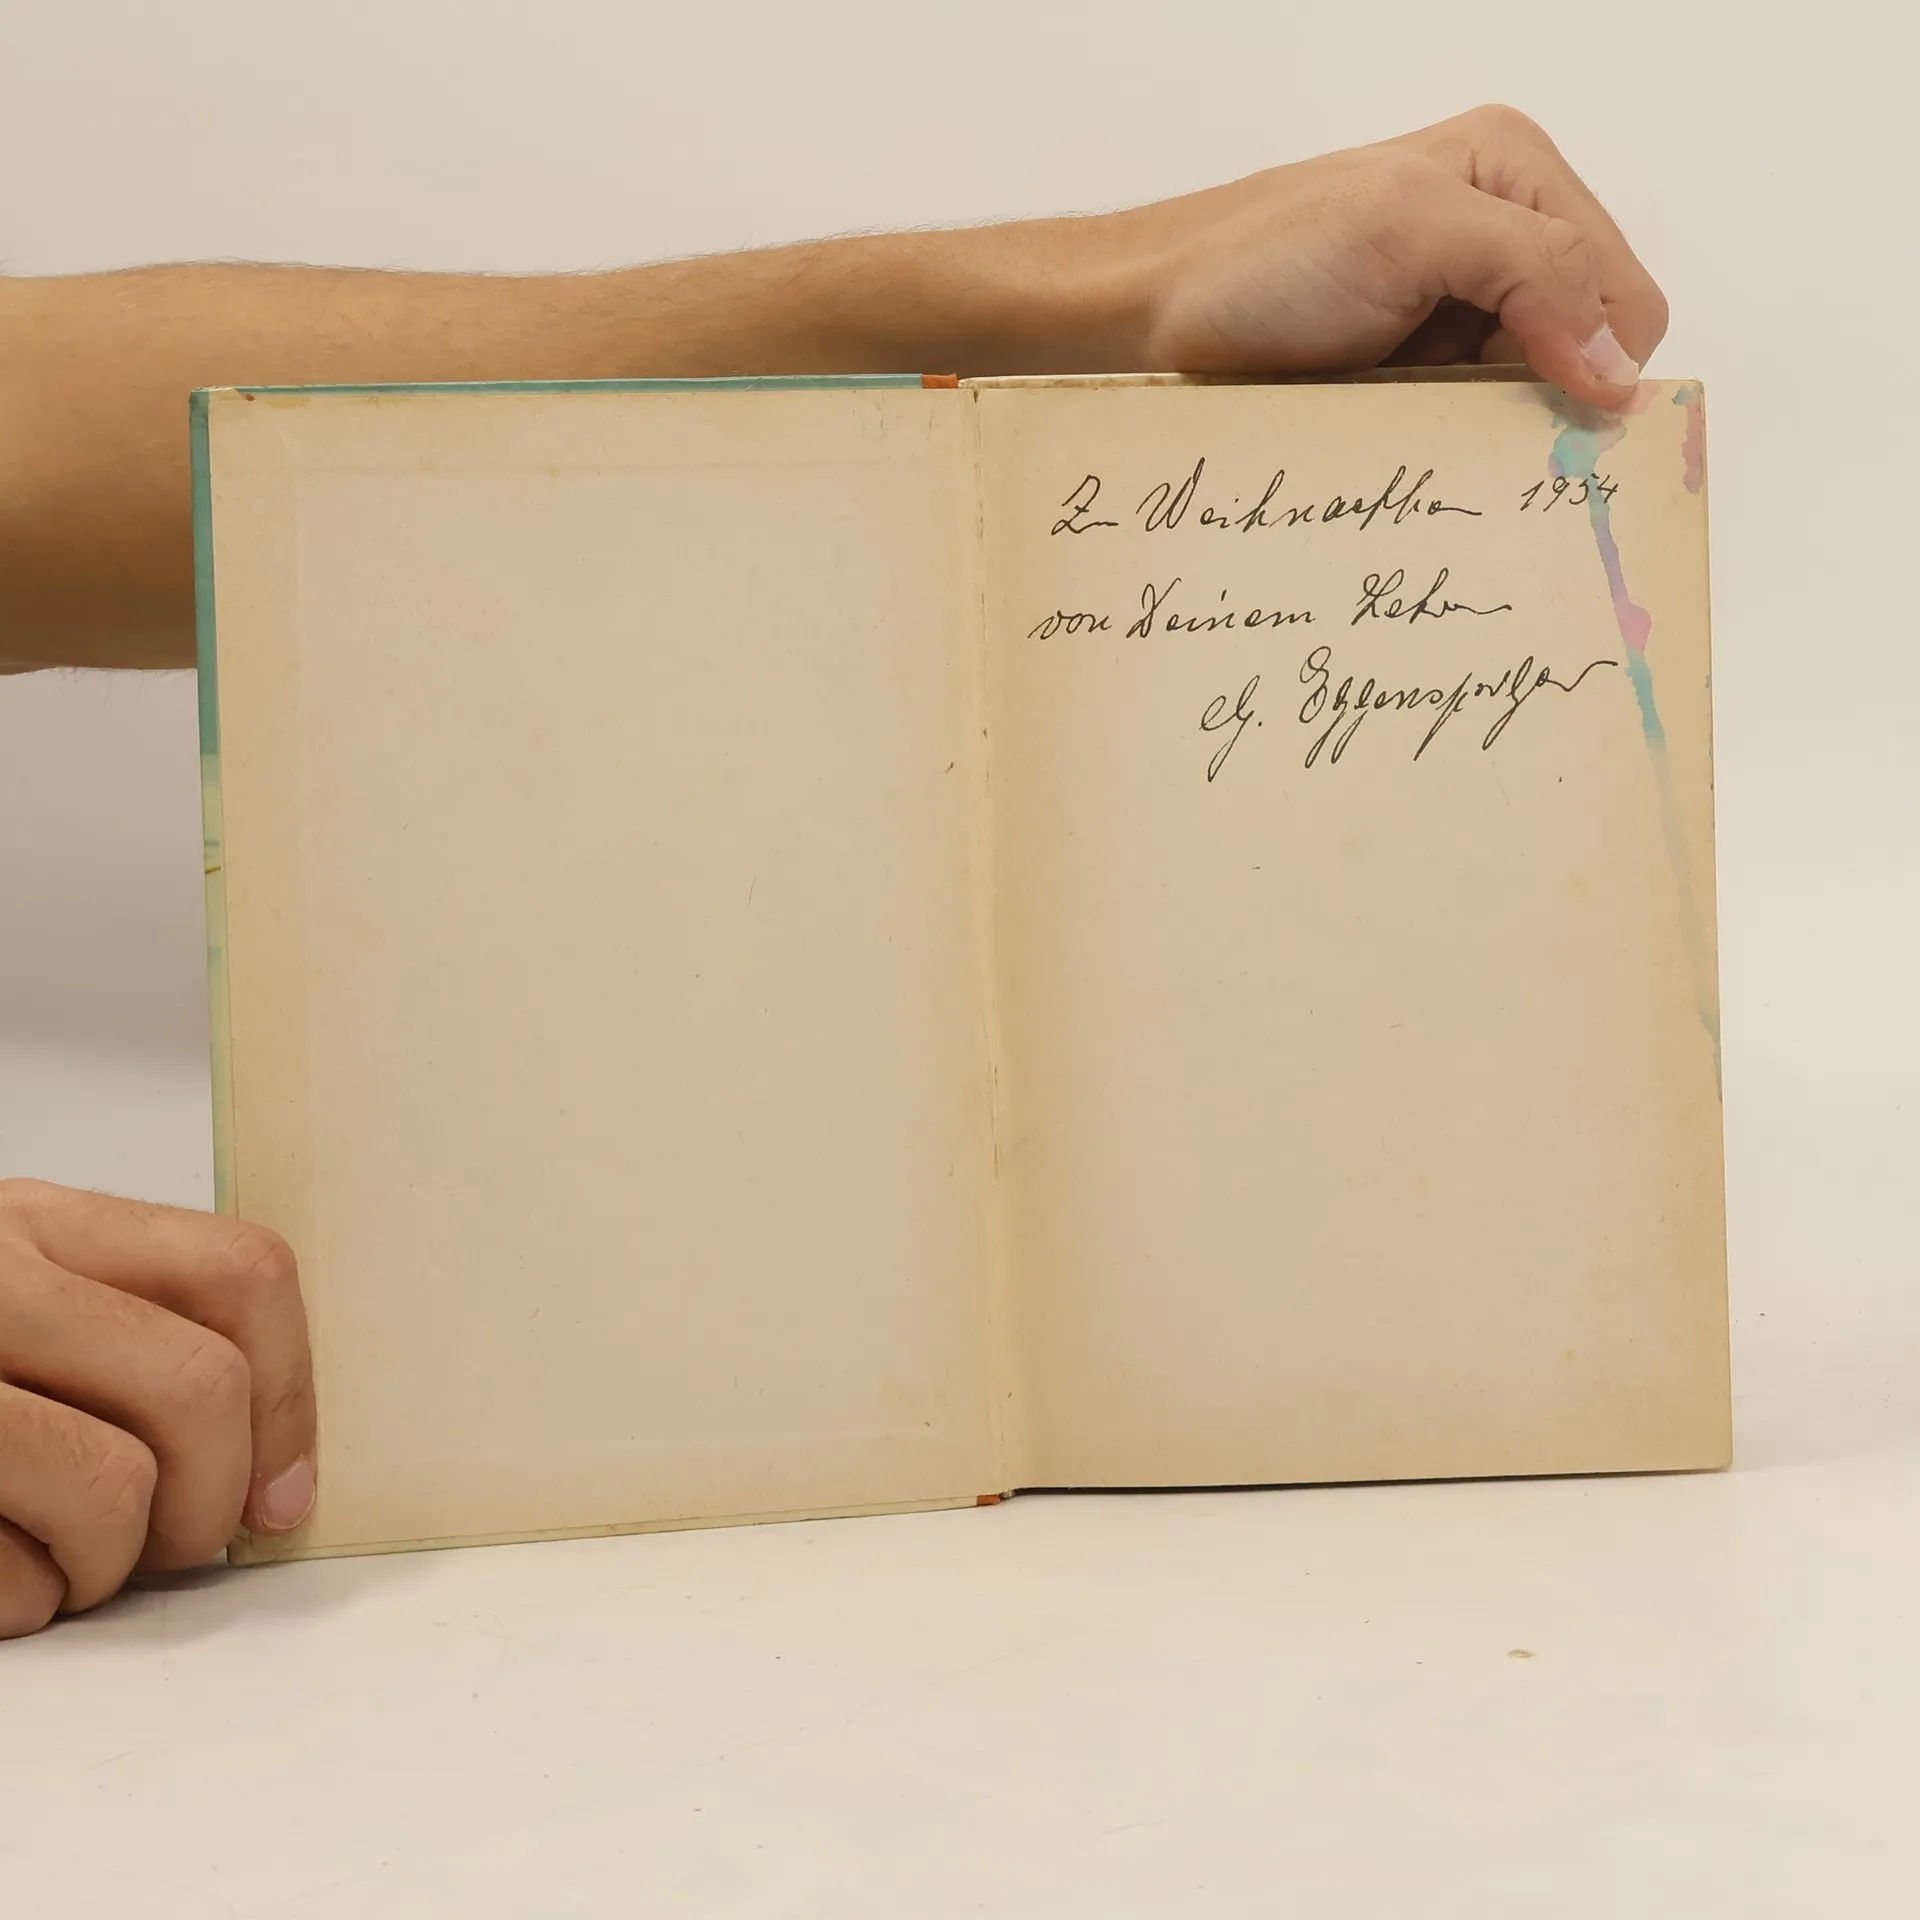 Zu Weihnachten 1954
von Deinem Lehrer
G.